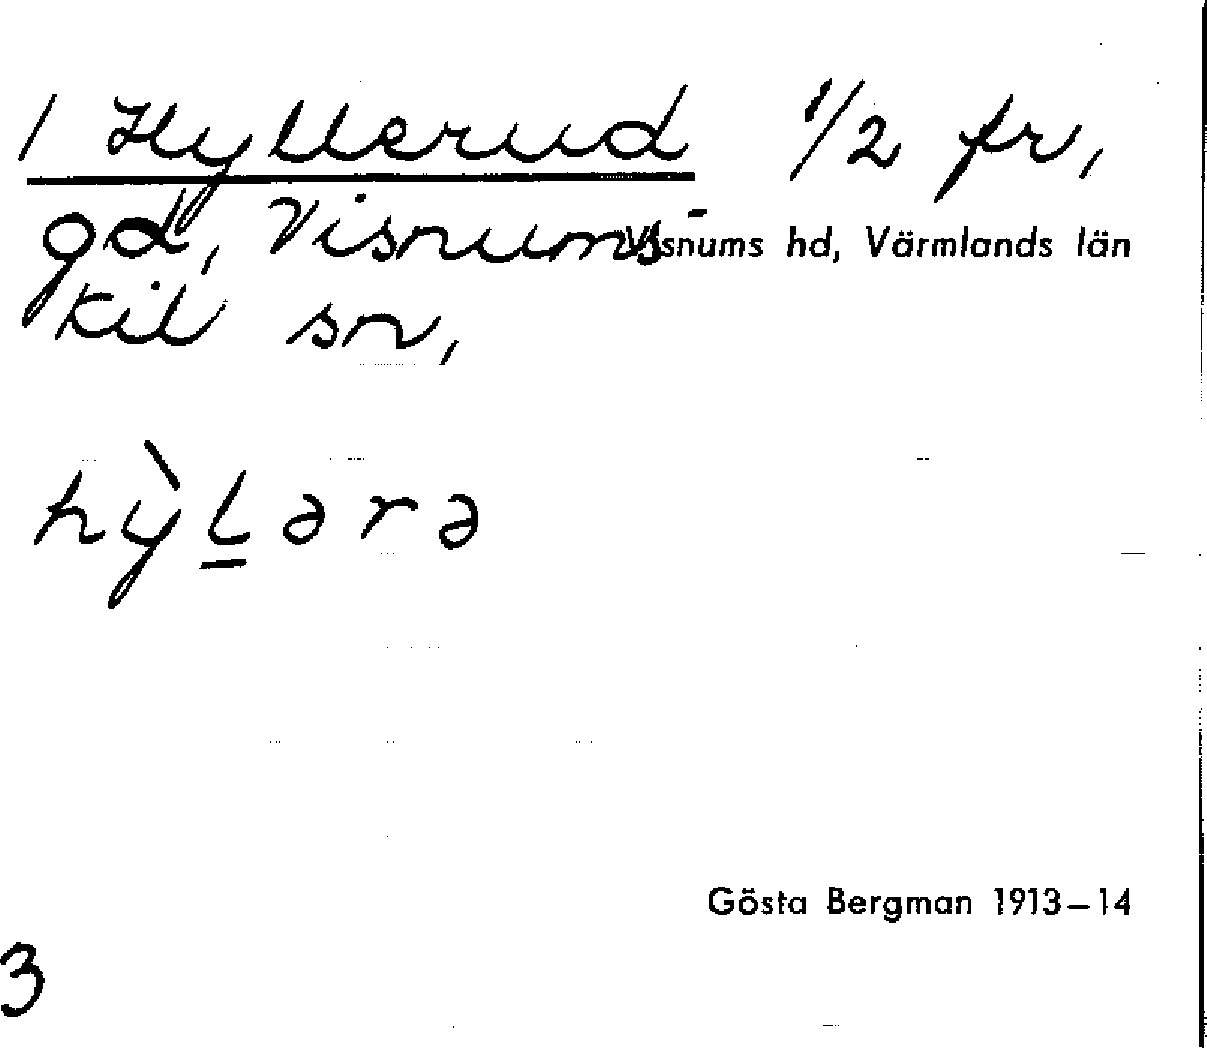 1 Hyllerud 1/2 fr,
gd, Visnums- Visnums hd, Värmlands län
kil sn,
hỳl̲ərə
Gösta Bergman 1913–14
3